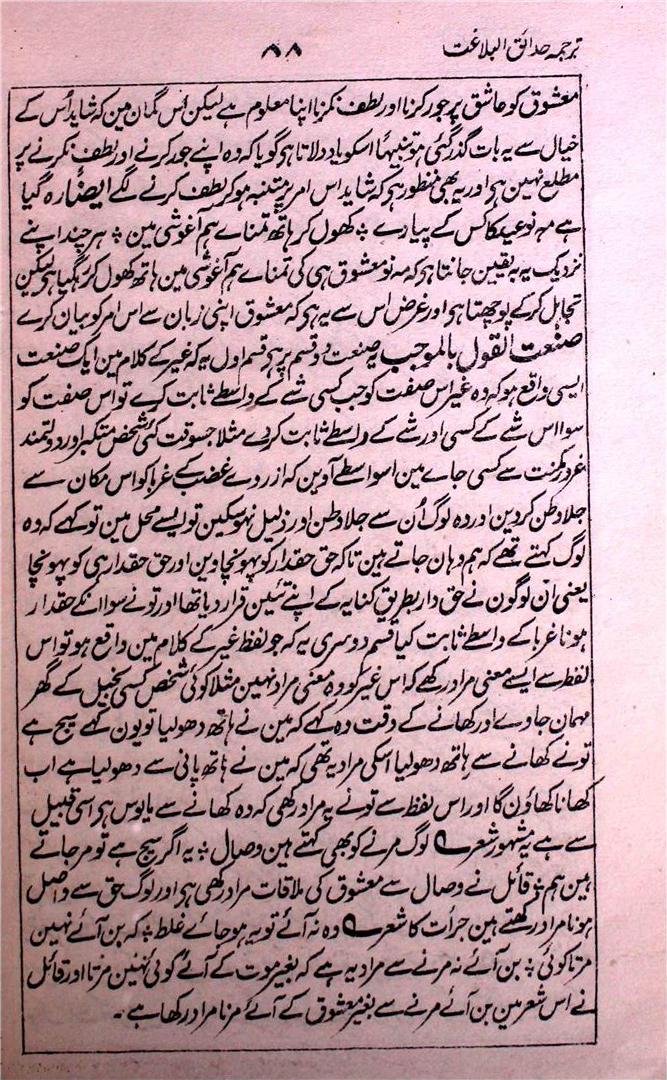 ترجمہ حدائق البلاغت
۸۸
معشوق کو عاشق پر جور کرنا اور لطف نکرنا اپنا معلوم ہے لیکن اُس گمان مین کہ شاید اُس کے
خیال سے یہ بات گذر گئی ہو تنبیہاً اسکو یاد دلاتا ہی گویا کہ وہ اپنے جور کرنے اور لطف نکرنے پر
مطلع نہین ہی اور یہ بھی منظور ہی کہ شاید اس امر پر متنبہ ہو کر لطف کرنے لگے ایضاً رہ گیا
ہے مہ نو عید کا کس کے پیارے ؞ کھول کر ہاتھ تمناے ہم آغوشی مین ؞ ہر چند اپنے
نزدیک یہ بہ یقین جانتا ہی کہ مہ نو معشوق ہی کی تمناے ہم آغوشی مین ہاتھ کھول کر رہگیا ہی لیکن
تجاہل کر کے پوچھتا ہی اور غرض اس سے یہ ہی کہ معشوق اپنی زبان سے اس امر کو بیان کرے
صنعت القول بالموجب یہ صنعت دو قسم پر ہی قسم اول یہ کہ غیر کے کلام مین ایک صنعت
ایسی واقع ہو کہ وہ غیر اس صفت کو جب کسی شے کے واسطے ثابت کرے تو اس صفت کو
سوا اس شے کے کسی اور شے کے واسطے ثابت کر دے مثلا جسوقت کئی شخص متکبر اور دولتمند
غرور و مکنت سے کسی جاے مین اسواسطے آوین کہ از روے غضب کے غربا کو اس مکان سے
جلا وطن کر دین اور وہ لوگ اُن سے جلا وطن اور ذلیل نہو سکین تو ایسے محل مین تو کہے کہ وہ
لوگ کہتے تھے کہ ہم وہان جاتے ہین تاکہ حق حقدار کو پہونچاوین اور حق حقدار ہی کو پہونچا
یعنی ان لوگون نے حق دار بطریق کنایہ کے اپنے تئین قرار دیا تھا اور تو نے سوا انکے حقدار
ہونا غربا کے واسطے ثابت کیا قسم دوسری یہ کہ جو لفظ غیر کے کلام مین واقع ہو تو اس
لفظ سے ایسے معنی مراد رکھے کہ اس غیر کو وہ معنی مراد نہین مثلا کوئی شخص کسی بخیل کے گھر
مہمان جاوے اور کھانے کے وقت وہ کہے کہ مین نے ہاتھ دھولیا تو یون کہے سچ ہے
تو نے کھانے سے ہاتھ دھولیا اسکی مراد یہ تھی کہ مین نے ہاتھ پانی سے دھولیا ہے اب
کھانا کھاؤن گا اور اس لفظ سے تو نے یہ مراد رکھی کہ وہ کھانے سے مایوس ہی اسی قبیل
سے ہے یہ مشہور شعر ؎ لوگ مرنے کو بھی کہتے ہین وصال ؞ یہ اگر سچ ہے تو مر جاتے
ہین ہم ؞ قائل نے وصال سے معشوق کی ملاقات مراد رکھی ہی اور لوگ حق سے واصل
ہونا مراد رکھتے ہین جرأت کا شعر ؎ وہ نہ آئے تو یہ ہو جاے غلط ؞ کہ بن آئے نہین
مرتا کوئی ؞ بن آئے نہ مرنے سے مراد یہ ہے کہ بغیر موت کے آئے کوئی نہین مرتا اور قائل
نے اس شعر مین بن آئے مرنے سے بغیر معشوق کے آئے مرنا مراد رکھا ہے ۔